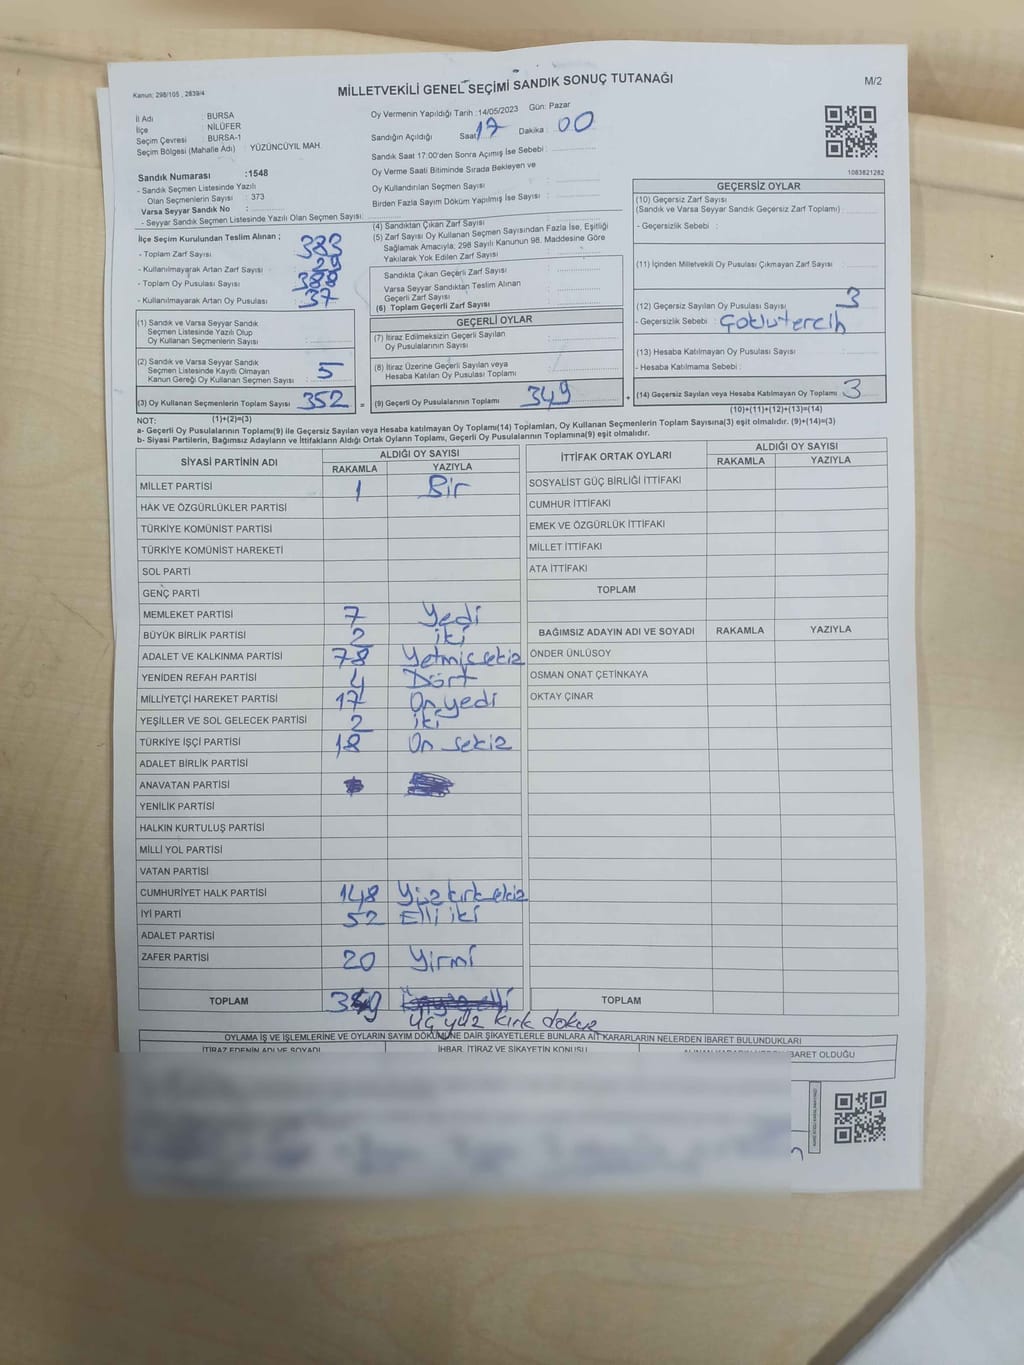 Kanun: 298/105 , 2839/4
MİLLETVEKİLİ GENEL SEÇİMİ SANDIK SONUÇ TUTANAĞI
M/2
İl Adı : BURSA
İlçe : NİLÜFER
Seçim Çevresi : BURSA-1
Seçim Bölgesi (Mahalle Adı) : YÜZÜNCÜYIL MAH.
Sandık Numarası :1548
- Sandık Seçmen Listesinde Yazılı
Olan Seçmenlerin Sayısı : 373
Varsa Seyyar Sandık No :
- Seyyar Sandık Seçmen Listesinde Yazılı Olan Seçmen Sayısı:
Oy Vermenin Yapıldığı Tarih :14/05/2023 Gün: Pazar
Sandığın Açıldığı Saat: 17 Dakika : 00
Sandık Saat 17:00'den Sonra Açımış İse Sebebi :
Oy Verme Saati Bitiminde Sırada Bekleyen ve
Oy Kullandırılan Seçmen Sayısı :
Birden Fazla Sayım Döküm Yapılmış İse Sayısı :
1083821282
İlçe Seçim Kurulundan Teslim Alınan ;
- Toplam Zarf Sayısı : 383
- Kullanılmayarak Artan Zarf Sayısı : 29
- Toplam Oy Pusulası Sayısı : 388
- Kullanılmayarak Artan Oy Pusulası : 37
(1) Sandık ve Varsa Seyyar Sandık
Seçmen Listesinde Yazılı Olup
Oy Kullanan Seçmenlerin Sayısı :
(2) Sandık ve Varsa Seyyar Sandık
Seçmen Listesinde Kayıtlı Olmayan
Kanun Gereği Oy Kullanan Seçmen Sayısı : 5
(3) Oy Kullanan Seçmenlerin Toplam Sayısı : 352 =
(4) Sandıktan Çıkan Zarf Sayısı :
(5) Zarf Sayısı Oy Kullanan Seçmen Sayısından Fazla İse, Eşitliği
Sağlamak Amacıyla; 298 Sayılı Kanunun 98. Maddesine Göre
Yakılarak Yok Edilen Zarf Sayısı :
Sandıkta Çıkan Geçerli Zarf Sayısı :
Varsa Seyyar Sandıktan Teslim Alınan
Geçerli Zarf Sayısı :
(6) Toplam Geçerli Zarf Sayısı :
GEÇERLİ OYLAR
(7) İtiraz Edilmeksizin Geçerli Sayılan
Oy Pusulalarının Sayısı :
(8) İtiraz Üzerine Geçerli Sayılan veya
Hesaba Katılan Oy Pusulası Toplamı :
(9) Geçerli Oy Pusulalarının Toplamı : 349 +
GEÇERSİZ OYLAR
(10) Geçersiz Zarf Sayısı
(Sandık ve Varsa Seyyar Sandık Geçersiz Zarf Toplamı) :
- Geçersizlik Sebebi :
(11) İçinden Milletvekili Oy Pusulası Çıkmayan Zarf Sayısı :
(12) Geçersiz Sayılan Oy Pusulası Sayısı : 3
- Geçersizlik Sebebi : Çoklu tercih
(13) Hesaba Katılmayan Oy Pusulası Sayısı :
- Hesaba Katılmama Sebebi :
(14) Geçersiz Sayılan veya Hesaba Katılmayan Oy Toplamı : 3
NOT: (1)+(2)=(3)
(10)+(11)+(12)+(13)=(14)
a- Geçerli Oy Pusulalarının Toplamı(9) ile Geçersiz Sayılan veya Hesaba katılmayan Oy Toplamı(14) Toplamları, Oy Kullanan Seçmenlerin Toplam Sayısına(3) eşit olmalıdır. (9)+(14)=(3)
b- Siyasi Partilerin, Bağımsız Adayların ve İttifakların Aldığı Ortak Oyların Toplamı, Geçerli Oy Pusulalarının Toplamına(9) eşit olmalıdır.
SİYASİ PARTİNİN ADI
ALDIĞI OY SAYISI
RAKAMLA YAZIYLA
MİLLET PARTİSİ 1 Bir
HAK VE ÖZGÜRLÜKLER PARTİSİ
TÜRKİYE KOMÜNİST PARTİSİ
TÜRKİYE KOMÜNİST HAREKETİ
SOL PARTİ
GENÇ PARTİ
MEMLEKET PARTİSİ 7 Yedi
BÜYÜK BİRLİK PARTİSİ 2 iki
ADALET VE KALKINMA PARTİSİ 78 Yetmiş sekiz
YENİDEN REFAH PARTİSİ 4 Dört
MİLLİYETÇİ HAREKET PARTİSİ 17 On yedi
YEŞİLLER VE SOL GELECEK PARTİSİ 2 iki
TÜRKİYE İŞÇİ PARTİSİ 18 On sekiz
ADALET BİRLİK PARTİSİ
ANAVATAN PARTİSİ
YENİLİK PARTİSİ
HALKIN KURTULUŞ PARTİSİ
MİLLİ YOL PARTİSİ
VATAN PARTİSİ
CUMHURİYET HALK PARTİSİ 148 Yüz kırk sekiz
İYİ PARTİ 52 Elli iki
ADALET PARTİSİ
ZAFER PARTİSİ 20 Yirmi
TOPLAM 349
Üç yüz kırk dokuz
İTTİFAK ORTAK OYLARI
ALDIĞI OY SAYISI
RAKAMLA YAZIYLA
SOSYALİST GÜÇ BİRLİĞİ İTTİFAKI
CUMHUR İTTİFAKI
EMEK VE ÖZGÜRLÜK İTTİFAKI
MİLLET İTTİFAKI
ATA İTTİFAKI
TOPLAM
BAĞIMSIZ ADAYIN ADI VE SOYADI RAKAMLA YAZIYLA
ÖNDER ÜNLÜSOY
OSMAN ONAT ÇETİNKAYA
OKTAY ÇINAR
TOPLAM
OYLAMA İŞ VE İŞLEMLERİNE VE OYLARIN SAYIM DÖKÜMÜNE DAİR ŞİKAYETLERLE BUNLARA AİT KARARLARIN NELERDEN İBARET BULUNDUKLARI
İTİRAZ EDENİN ADI VE SOYADI İHBAR, İTİRAZ VE ŞİKAYETİN KONUSU İBARET OLDUĞU